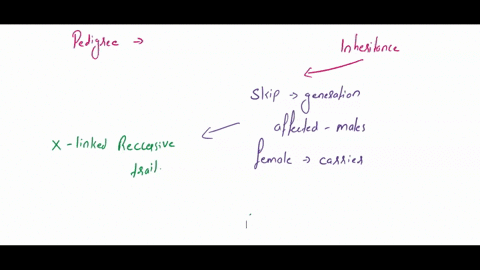 Pedigree →
Inheritance
Skip → generation
affected - males
female → carrier
X-linked Reccersive
trait.